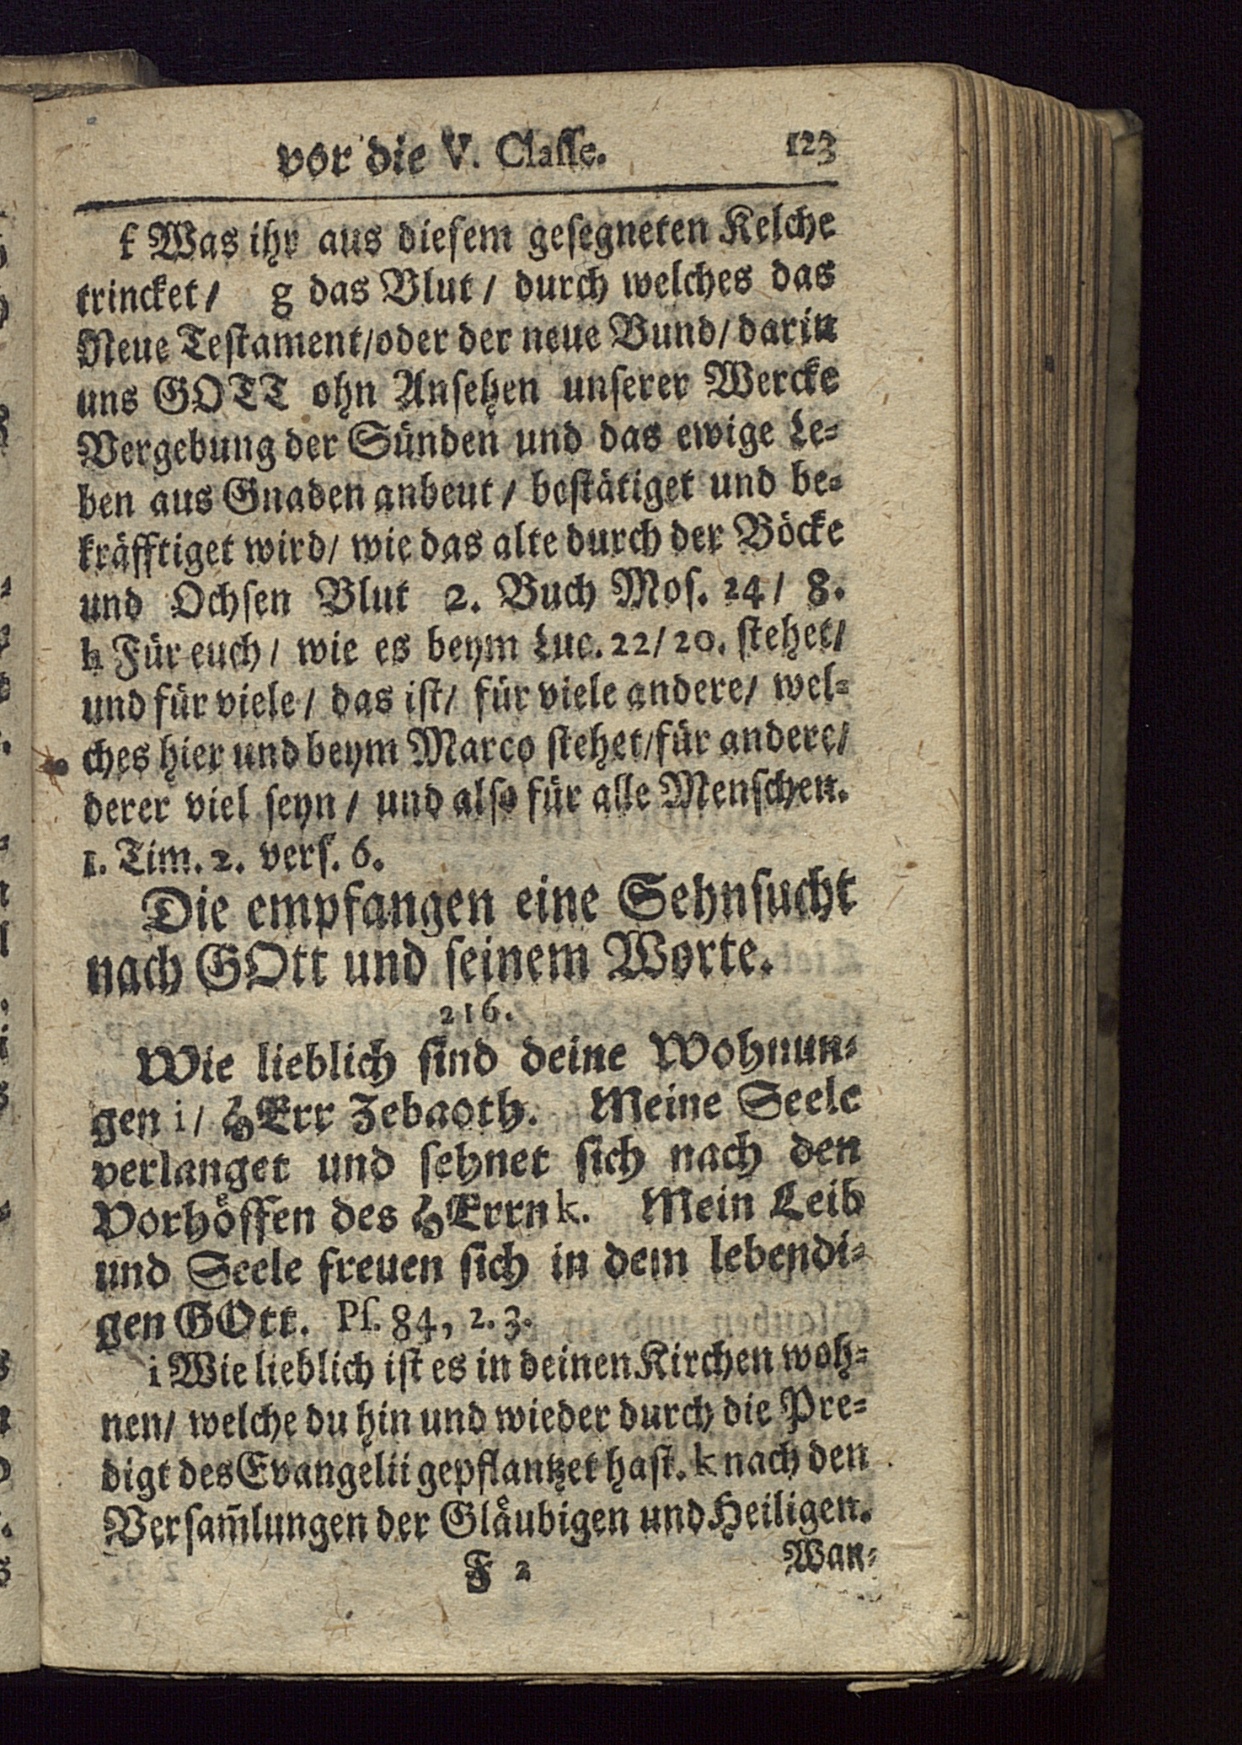 vor die V. Claſſe. 123
f Was ihr aus dieſem geſegneten Kelche
trincket / g das Blut / durch welches das
Neue Teſtament / oder der neue Bund / darin
uns GOTT ohn Anſehen unſerer Wercke
Vergebung der Sünden und das ewige Le-
ben aus Gnaden anbeut / beſtätiget und be-
kräfftiget wird / wie das alte durch der Böcke
und Ochſen Blut 2. Buch Moſ. 24 / 8.
h Für euch / wie es beym Luc. 22 / 20. ſtehet /
und für viele / das iſt / für viele andere / wel-
ches hier und beym Marco ſtehet / für andere /
derer viel ſeyn / und alſo für alle Menſchen.
1. Tim. 2. verſ. 6.
Die empfangen eine Sehnſucht
nach GOtt und ſeinem Worte.
216.
Wie lieblich ſind deine Wohnun-
gen i / HErr Zebaoth. Meine Seele
verlanget und ſehnet ſich nach den
Vorhöffen des HErrn k. Mein Leib
und Seele freuen ſich in dem lebendi-
gen GOtt. Pſ. 84, 2. 3.
i Wie lieblich iſt es in deinen Kirchen woh-
nen / welche du hin und wieder durch die Pre-
digt des Evangelii gepflantzet haſt. k nach den
Verſam̃lungen der Glåubigen und Heiligen.
F 2 Wan-